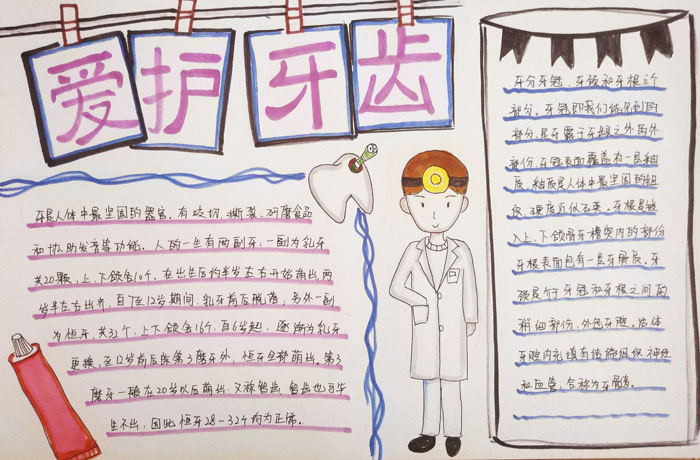 爱护牙齿
牙是人体中最坚固的器官。有咬切、撕裂、研磨食品
和协助发音等功能。人的一生有两副牙:一副为乳牙
共20颗,上、下颌各10个。在出生后约半岁左右开始萌出,两
岁半左右出齐,自7至12岁期间,乳牙前后脱落,另外一副
为恒牙,共32个,上下颌各16个,自6岁起,逐渐为乳牙
更换,至12岁前后除第3磨牙外,恒牙全部萌出。第3
磨牙一般在20岁以后萌出,又称智齿,智齿也可毕
生不出,因此恒牙28-32个均为正常。
牙分牙冠、牙颈和牙根三个
部分。牙冠即我们能见到的
部分,是牙露于牙龈之外的外
部份,牙冠表面覆盖有一层釉
质,釉质是人体中最坚固的组
织,硬度近似石英。牙根是嵌
入上、下颌骨牙槽突内的部份
牙根表面包有一层牙骨质。牙
颈是介于牙冠和牙根之间的
稍细部份,外包牙龈,活体
牙腔内充填有结缔组织神经
和血管,合称为牙髓。